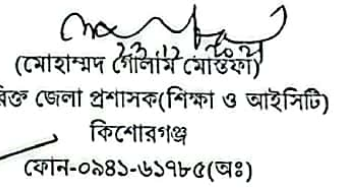 (মোহাম্মদ গোলাম মোস্তফা)
রিক্ত জেলা প্রশাসক(শিক্ষা ও আইসিটি)
কিশোরগঞ্জ
ফোন-০৯৪১-৬১৭৮৫(অঃ)